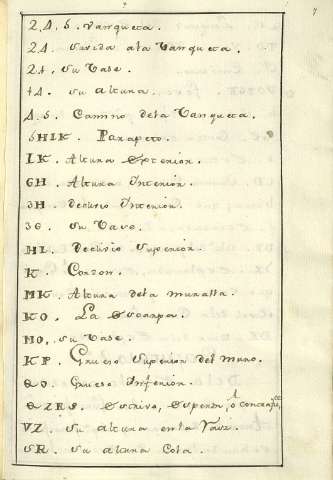 2,4,5. Vanqueta.
24. suvida ala Vanqueta.
2t, su Vase.
t4. su altura.
45. Camino dela Vanqueta.
5HIK. Parapeto.
IK. Altura Exterior.
GH. Altura Interior.
3H. declivio Interior.
3G. su Vase.
HI. Declivio superior.
K. Cordon.
MK. Altura dela muralla.
KO. La Escarpa.
MO, su Vase.
KP. Grueso superior del muro.
QO. Grueso Inferior.
VZ. su altura en la Raiz.
SR. su altura Cota.